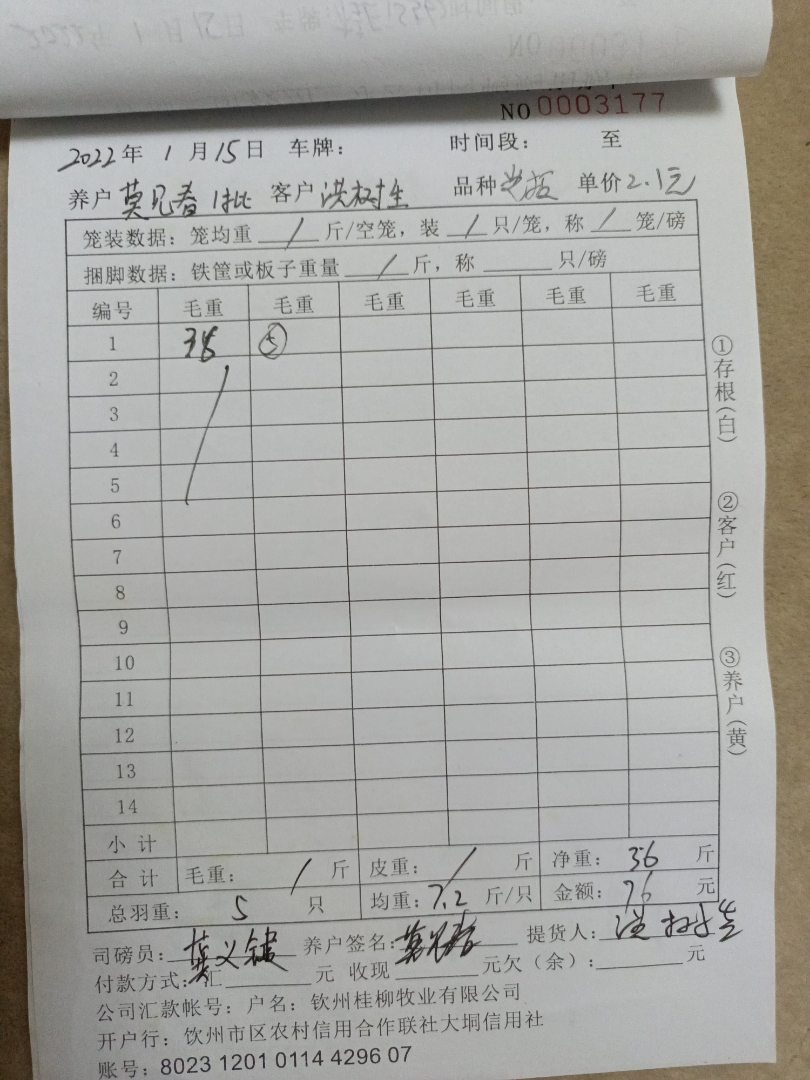 NO 0003177
2022年 1 月 15 日 车牌: 时间段: 至
养户 莫兄春 1批 客户 洪树生 品种 单价 2.1元
笼装数据: 笼均重 / 斤/空笼, 装 / 只/笼, 称 / 笼/磅
捆脚数据: 铁筐或板子重量 / 斤, 称 只/磅
编号 毛重 毛重 毛重 毛重 毛重 毛重
1 36 ⑤
2
3
4
5
6
7
8
9
10
11
12
13
14
小计
合计 毛重: / 斤 皮重: / 斤 净重: 36 斤
总羽重: 5 只 均重: 7.2 斤/只 金额: 76 元
司磅员: 养户签名: 莫兄春 提货人: 洪树生
付款方式: 汇 元 收现 元欠(余): 元
公司汇款帐号: 户名: 钦州桂柳牧业有限公司
开户行: 钦州市区农村信用合作联社大垌信用社
账号: 8023 1201 0114 4296 07
①存根(白)
②客户(红)
③养户(黄)